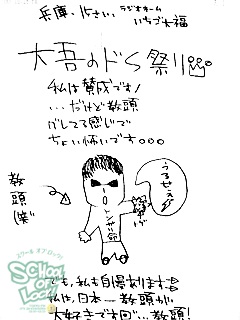 兵庫・15さい
ラジオネーム
いちご大福
大吾のドS祭り
私は賛成です!
…だけど教頭
がしてる感じで
ちょい怖いです。。。
うるせぇ!!
教頭(笑)
でも、私も自慢あります
私は、日本一教頭が
大好きです(回)…教頭!
スクール オブ ロック!
SCHOOL OF LOCK!